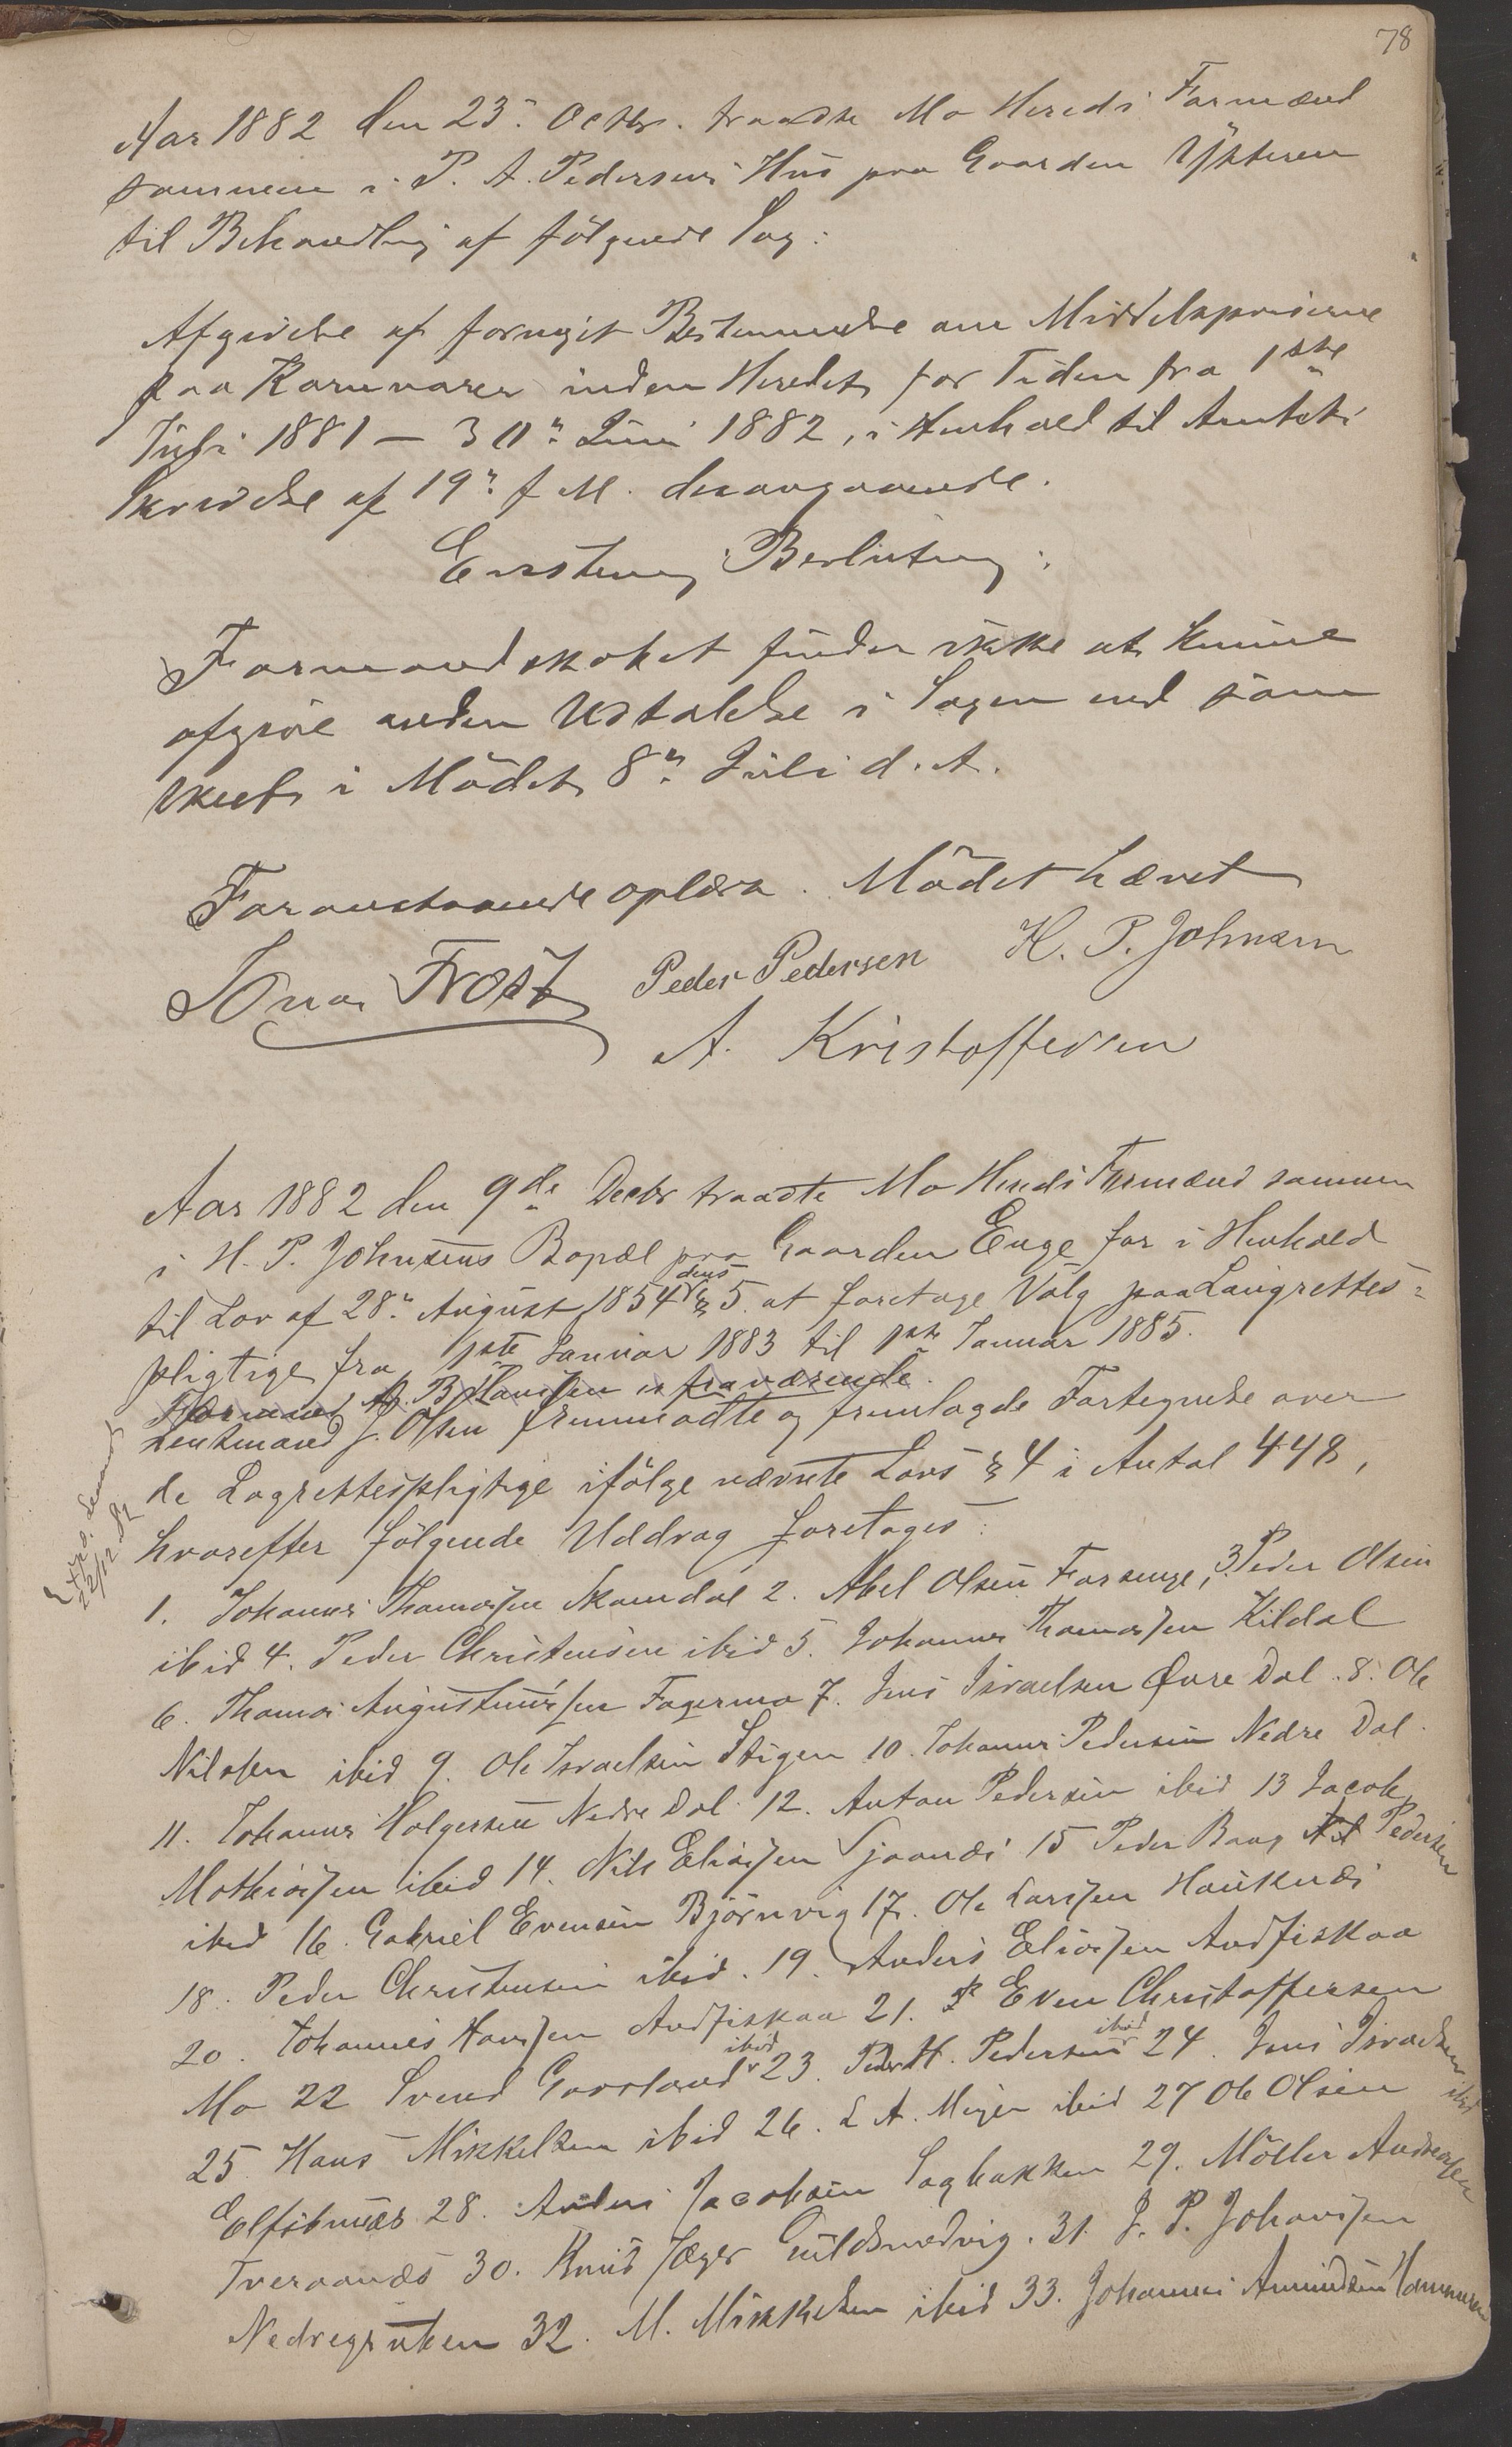 78
Aar 1882 den 23de Octbr. traadte Mo Hereds Formænd
sammen i P. A. Pedersens Hus paa Gaarden Ytteren
til Behandling af følgende Sag:
Afgivelse af fornyet Bestemmelse om Middelspriserne
paa Kornvarer inden Heredet for Tiden fra 1ste
Juli 1881 – 30te Juni 1882, i Henhold til Amtets
Skrivelse af 19de f. M. desangaaende.
Eenstemmig Beslutning:
Formandskabet finder ikke at kunne
afgive anden Udtalelse i Sagen end som
skeet i Mødet 8de Juli d. A.
Foranstaaende oplæst. Mødet hævet
Jonas Frost Peder Pedersen H. P. Johnsen
A. Kristoffersen
Aar 1882 den 9de Decbr traadte Mo Hereds Formænd sammen
i H. P. Johnsens Bopæl paa Gaarden Enge for i Henhold
til Lov af 28de August 1854 dens § 5 at foretage Valg paa Laugrettes-
pligtige fra 1ste Januar 1883 til 1ste Januar 1885.
Formand B. Hansen er fraværende.
Lensmand J. Olsen fremmødte og fremlagde Fortegnelse over
de Lagrettespligtige ifølge nævnte Lovs § 4 i Antal 448,
hvorefter følgende Uddrag foretages:
Exp. Lensmand
22/12 82
1. Johannes Thomassen Skamdal 2. Abel Olsen Forsenge, 3. Peder Olsen
ibid 4. Peder Christensen ibid 5. Johannes Thomassen Kildal
6. Thomas Augustinussen Fagermo 7. Jens Israelsen Øvre Dal 8. Ole
Nilssen ibid 9. Ole Israelsen Stigen 10. Johannes Pedersen Nedre Dal
11. Johannes Holgersen Nedre Dal 12. Anton Pedersen ibid 13 Jacob
Mathiassen ibid 14. Nils Eliassen Sjaanæs 15 Peder Baag Pedersen
ibid 16. Gabriel Evensen Bjørnvig 17. Ole Larssen Hauknæs
18. Peder Christensen ibid. 19. Anders Eliassen Andfiskaa
20. Johannes Hanssen Andfiskaa 21. Even Christoffersen
Mo 22 Svend Gaasland ibid 23. Peder H. Pedersen ibid 24. Jens Israelsen ibid
25 Hans Mikkelsen ibid 26. L A. Meyer ibid 27 Ole Olsen
Elfsbnæs 28. Anders Jacobsen Sagbakken 29. Møller Andreassen
Tveraanæs 30. Knud Jæger Guldsmedvig. 31. J. P. Johanssen
Nedregruben 32. M. Mikkelsen ibid 33. Johannes Amundsen Hammeren